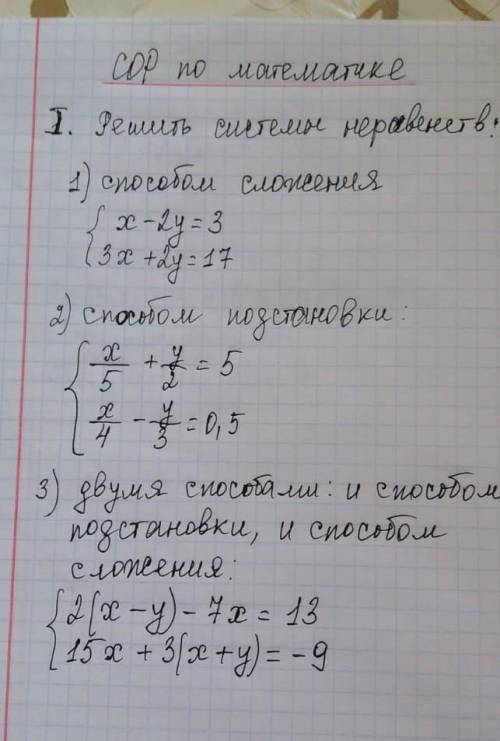 СОР по математике
I. Решить системы неравенств:
1) способом сложения
{ x - 2y = 3
3x + 2y = 17
2) способом подстановки:
{ x/5 + y/2 = 5
x/4 - y/3 = 0,5
3) двумя способами: и способом
подстановки, и способом
сложения:
{ 2(x - y) - 7x = 13
15x + 3(x + y) = -9